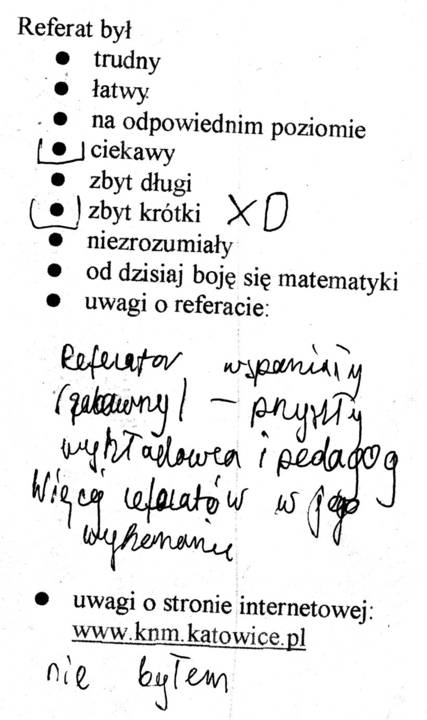 Referat był
● trudny
● łatwy
● na odpowiednim poziomie
● ciekawy
● zbyt długi
● zbyt krótki XD
● niezrozumiały
● od dzisiaj boję się matematyki
● uwagi o referacie:
Referator wspaniały
(zabawny) – przyszły
wykładowca i pedagog
Więcej referatów w jego
wykonaniu
● uwagi o stronie internetowej:
www.knm.katowice.pl
nie byłem